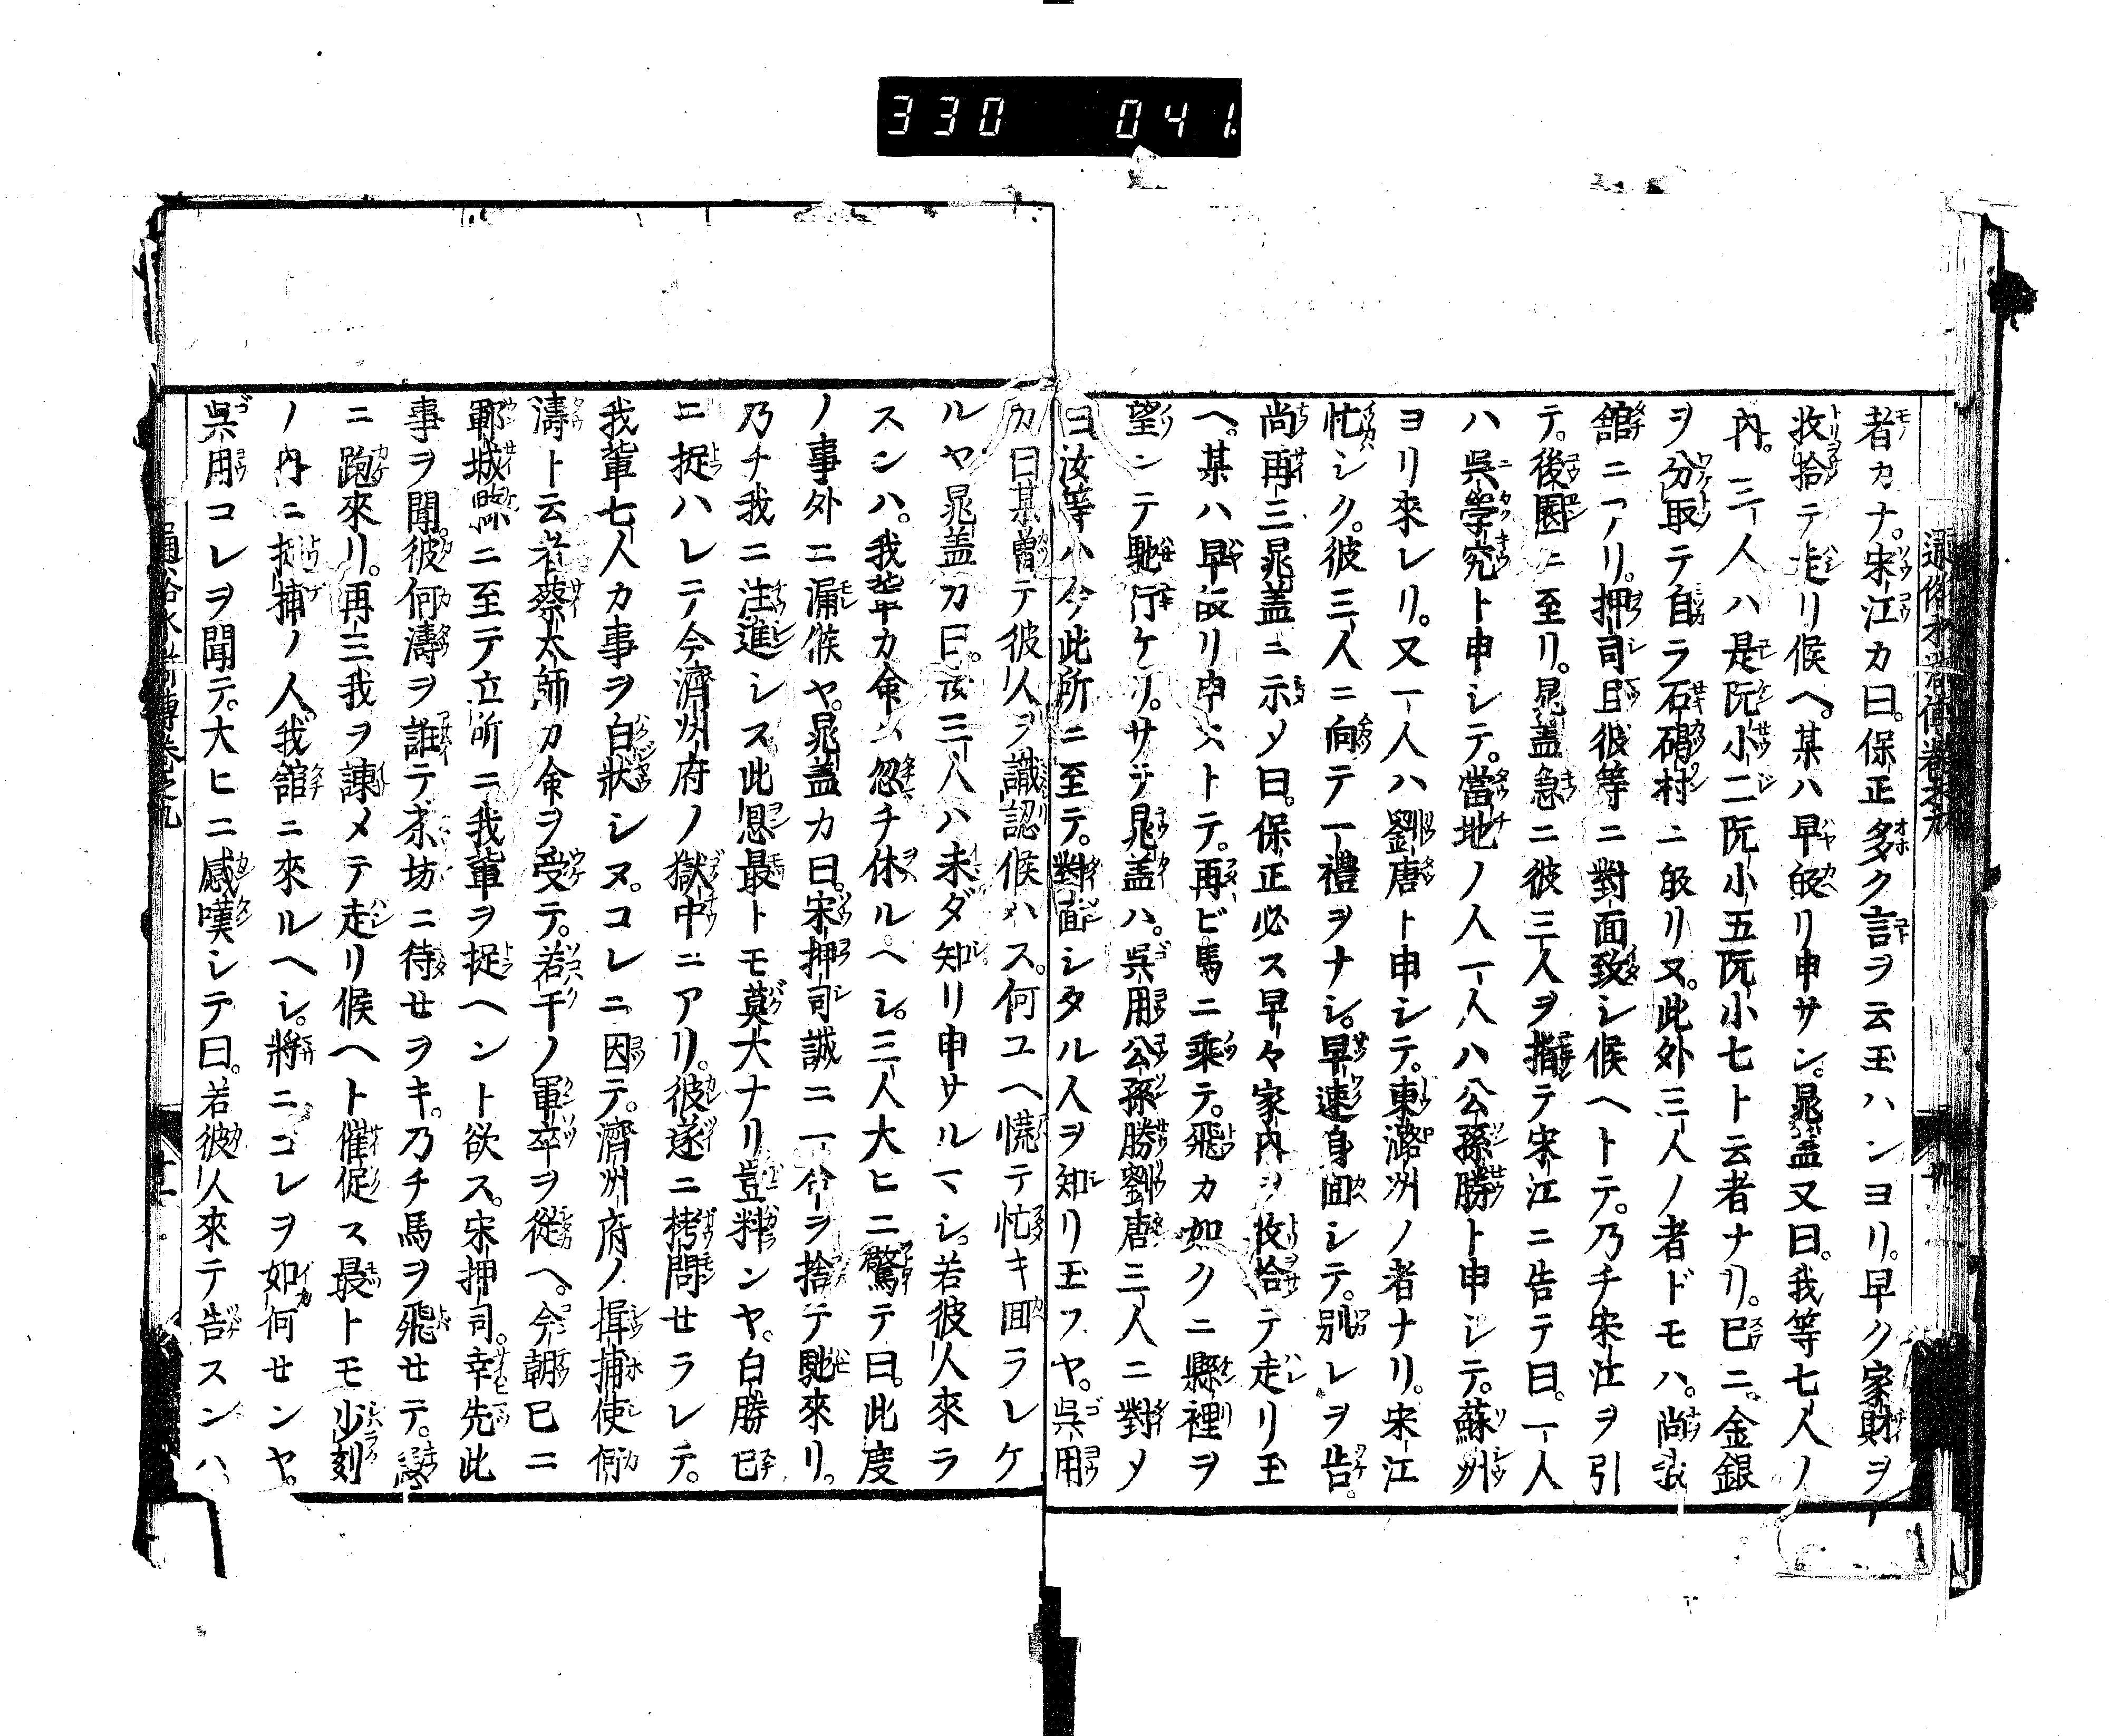 330 041
者カナ。宋江カ曰。保正多ク言ヲ云玉ハンヨリ。早ク家財ヲ
收拾テ走リ候ヘ。某ハ早皈リ申サン。晁盖又曰。我等七人ノ
內。三人ハ是阮小二阮小五阮小七ト云者ナリ。已ニ金銀
ヲ分取テ自ラ石碣村ニ皈リヌ。此外三人ノ者ドモハ。尚我
舘ニアリ。押司且彼等ニ對面致シ候ヘトテ。乃チ宋江ヲ引
テ。後園ニ至リ。晁盖急ニ彼三人ヲ指テ宋江ニ告テ曰。一人
ハ呉學究ト申シテ。當地ノ人一人ハ公孫勝ト申シテ。蘇州
ヨリ來レリ。又一人ハ劉唐ト申シテ。東潞州ノ者ナリ。宋江
忙シク。彼三人ニ向テ一禮ヲナシ。早速身回シテ。別レヲ告。
尚再三晁盖ニ示メ曰。保正必ス早々家內ヲ收拾テ走リ玉
ヘ。某ハ早皈リ申ストテ。再ビ馬ニ乘テ。飛カ如クニ縣裡ヲ
望ンテ馳行ケリ。サテ晁盖ハ。呉用公孫勝劉唐三人ニ對メ
曰汝等ハ今此所ニ至テ。對面シタル人ヲ知リ玉フヤ。呉用
カ曰某曽テ彼人ヲ識認候ハス。何ユヘ慌テ忙キ回ラレケ
ルヤ晁盖カ曰。汝三人ハ未ダ知リ申サルマシ。若彼人來ラ
スンハ。我輩カ命ハ忽チ休ルヘシ。三人大ヒニ驚テ曰。此度
ノ事外ニ漏候ヤ。晁盖カ曰。宋押司誠ニ一命ヲ捨テ馳來リ。
乃チ我ニ注進シス此恩最トモ莫大ナリ豈料ンヤ。白勝已
ニ捉ハレテ今濟州府ノ獄中ニアリ。彼遂ニ栲問セラレテ。
我輩七人カ事ヲ白狀シヌ。コレニ因テ。濟州府ノ揖捕使何
濤ト云者蔡太師カ命ヲ受テ。若干ノ軍卒ヲ從ヘ。今朝已ニ
鄆城縣ニ至テ立所ニ我輩ヲ捉ヘント欲ス。宋押司。幸先此
事ヲ聞。彼何濤ヲ誑テ茶坊ニ待せヲキ。乃チ馬ヲ飛せテ。
ニ跑來リ。再三我ヲ諌メテ走リ候ヘト催促ス最トモ少刻
ノ內ニ捉捕ノ人。我舘ニ來ルヘシ。將ニコレヲ如何せンヤ。
呉用コレヲ聞テ。大ヒニ感嘆シテ曰。若彼人來テ告スンハ。
通俗水滸傳卷之九